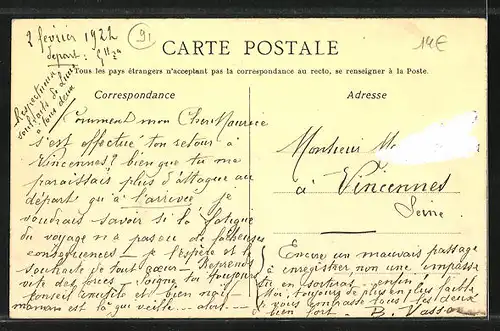 2 février 1922
depart: 9 h 1/2
91
14€
CARTE POSTALE
Tous les pays étrangers n'acceptant pas la correspondance au recto, se renseigner à la Poste.
Correspondance
Adresse
Respectueux
à tous deux
Comment mon Cher Maurice
s'est effectué ton retour à
Vincennes? bien que tu me
paraissais plus d'attaque au
départ qu'à l'arrivée je
voudrais savoir si la fatigue
du voyage n'a pas eu de facheuses
conséquences - je l'espère et le
souhaite de tout coeur - Reprends
vite des forces - Soigne toi toujours
maman est là qui veille
Monsieur M
à Vincennes
Seine
Encore un mauvais passage
à enregistrer non une impasse
tu en sortiras enfin
Moi, toujours de plus en plus faible
je vous embrasse tous les deux
bien fort - B. Vasson